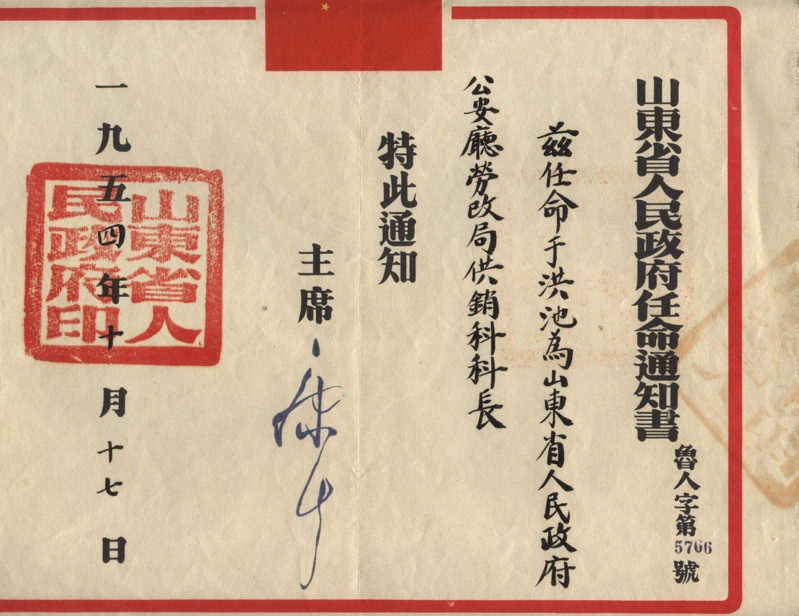 山東省人民政府任命通知書
魯人字第5706號
茲任命于洪池為山東省人民政府
公安廳勞改局供銷科科長
特此通知
主席 康生
一九五四年十月十七日
山東省人
民政府印